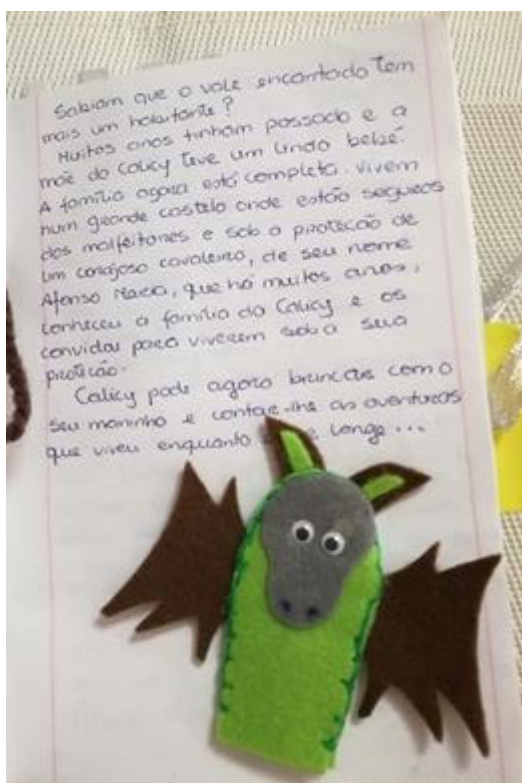 Sabiam que o vale encantado tem
mais um habitante?
Muitos anos tinham passado e a
mãe do Calicy teve um lindo bebé.
A família agora está completa. Vivem
num grande castelo onde estão seguros
dos malfeitores e sob a proteção de
um corajoso cavaleiro, de seu nome
Afonso, que há muitos anos,
conheceu a família do Calicy e os
convidou para viverem sob a sua
proteção.
Calicy pode agora brincar com o
seu maninho e contar-lhe as aventuras
que viveu enquanto longe...